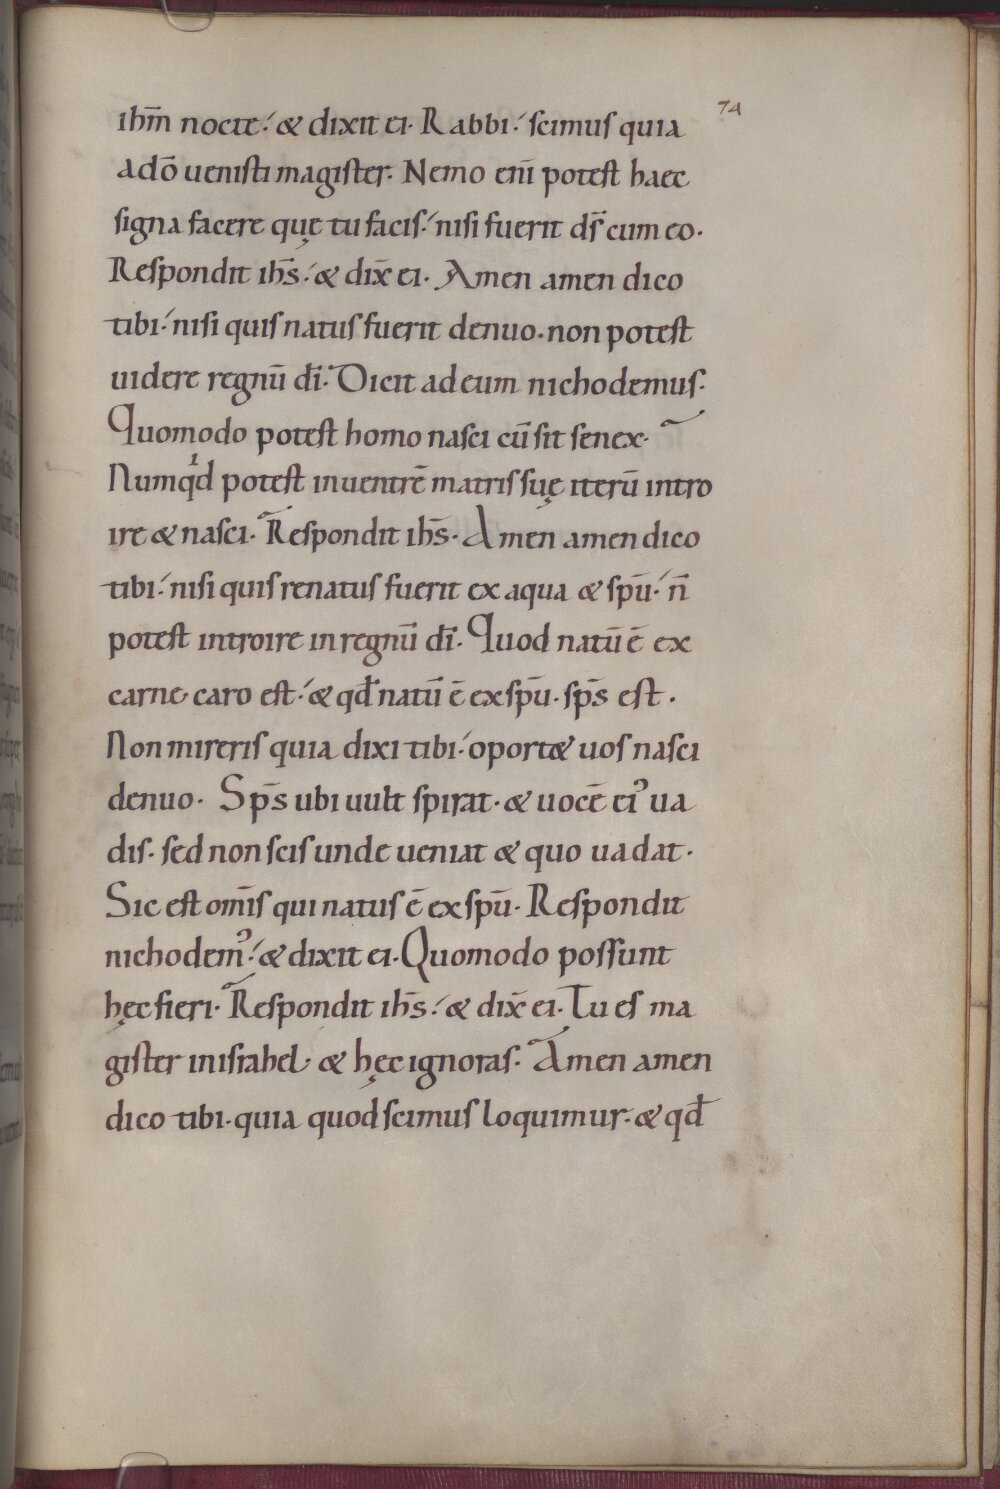 74
ihm̄ nocte ⁊ & dixit ei. Rabbi ⁊ scimus quia
a dō uenisti magister. Nemo enī potest haec
signa facere quę tu facis ⁊ nisi fuerit ds̄ cum eo.
Respondit ihs̄ ⁊ & dix̄ ei. Amen amen dico
tibi ⁊ nisi quis natus fuerit denuo. non potest
uidere regnū dī. Dicit ad eum nichodemus.
Quomodo potest homo nasci cū sit senex.
Numqͥd potest in uentrē matris suę iterū intro
ire & nasci. Respondit ihs̄. Amen amen dico
tibi ⁊ nisi quis renatus fuerit ex aqua & spū ⁊ n̄
potest introire in regnū dī. Quod natū ē ex
carne caro est ⁊ & qd̄ natū ē ex spū. sps̄ est.
Non mireris quia dixi tibi ⁊ oport& uos nasci
denuo. Sps̄ ubi uult spirat. & uocē eiꝰ ua
dis. sed non scis unde ueniat & quo uadat.
Sic est om̄is qui natus ē ex spū. Respondit
nichodemꝰ ⁊ & dixit ei. Quomodo possunt
hęc fieri. Respondit ihs̄ ⁊ & dix̄ ei. Tu es ma
gister in israhel. & hęc ignoras. Amen amen
dico tibi. quia quod scimus loquimur. & qd̄